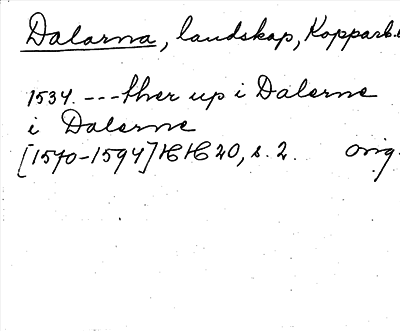 Dalarna, landskap, Kopparb.
1534. --- ther up i Dalerne
i Dalerne
[1570-1594] HH 20, s. 2. orig.